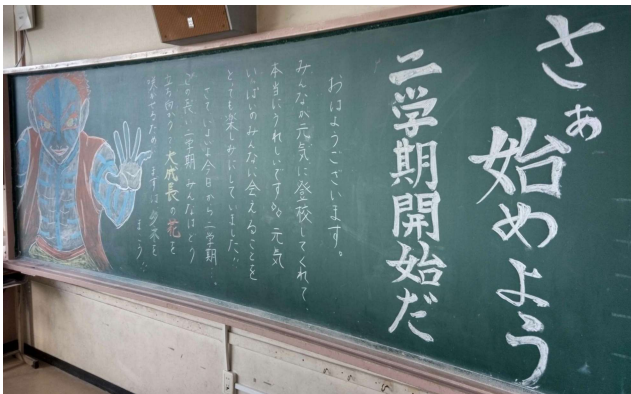 さぁ
始めよう
二学期開始だ
おはようございます。
みんなが元気に登校してくれて
本当にうれしいです。元気
いっぱいのみんなに会えることを
とても楽しみにしていました。
さて、いよいよ今日から二学期。
この長い二学期、みんなはどう
立ち向かう？大成長の花を
咲かせるため、まずは
まこう！